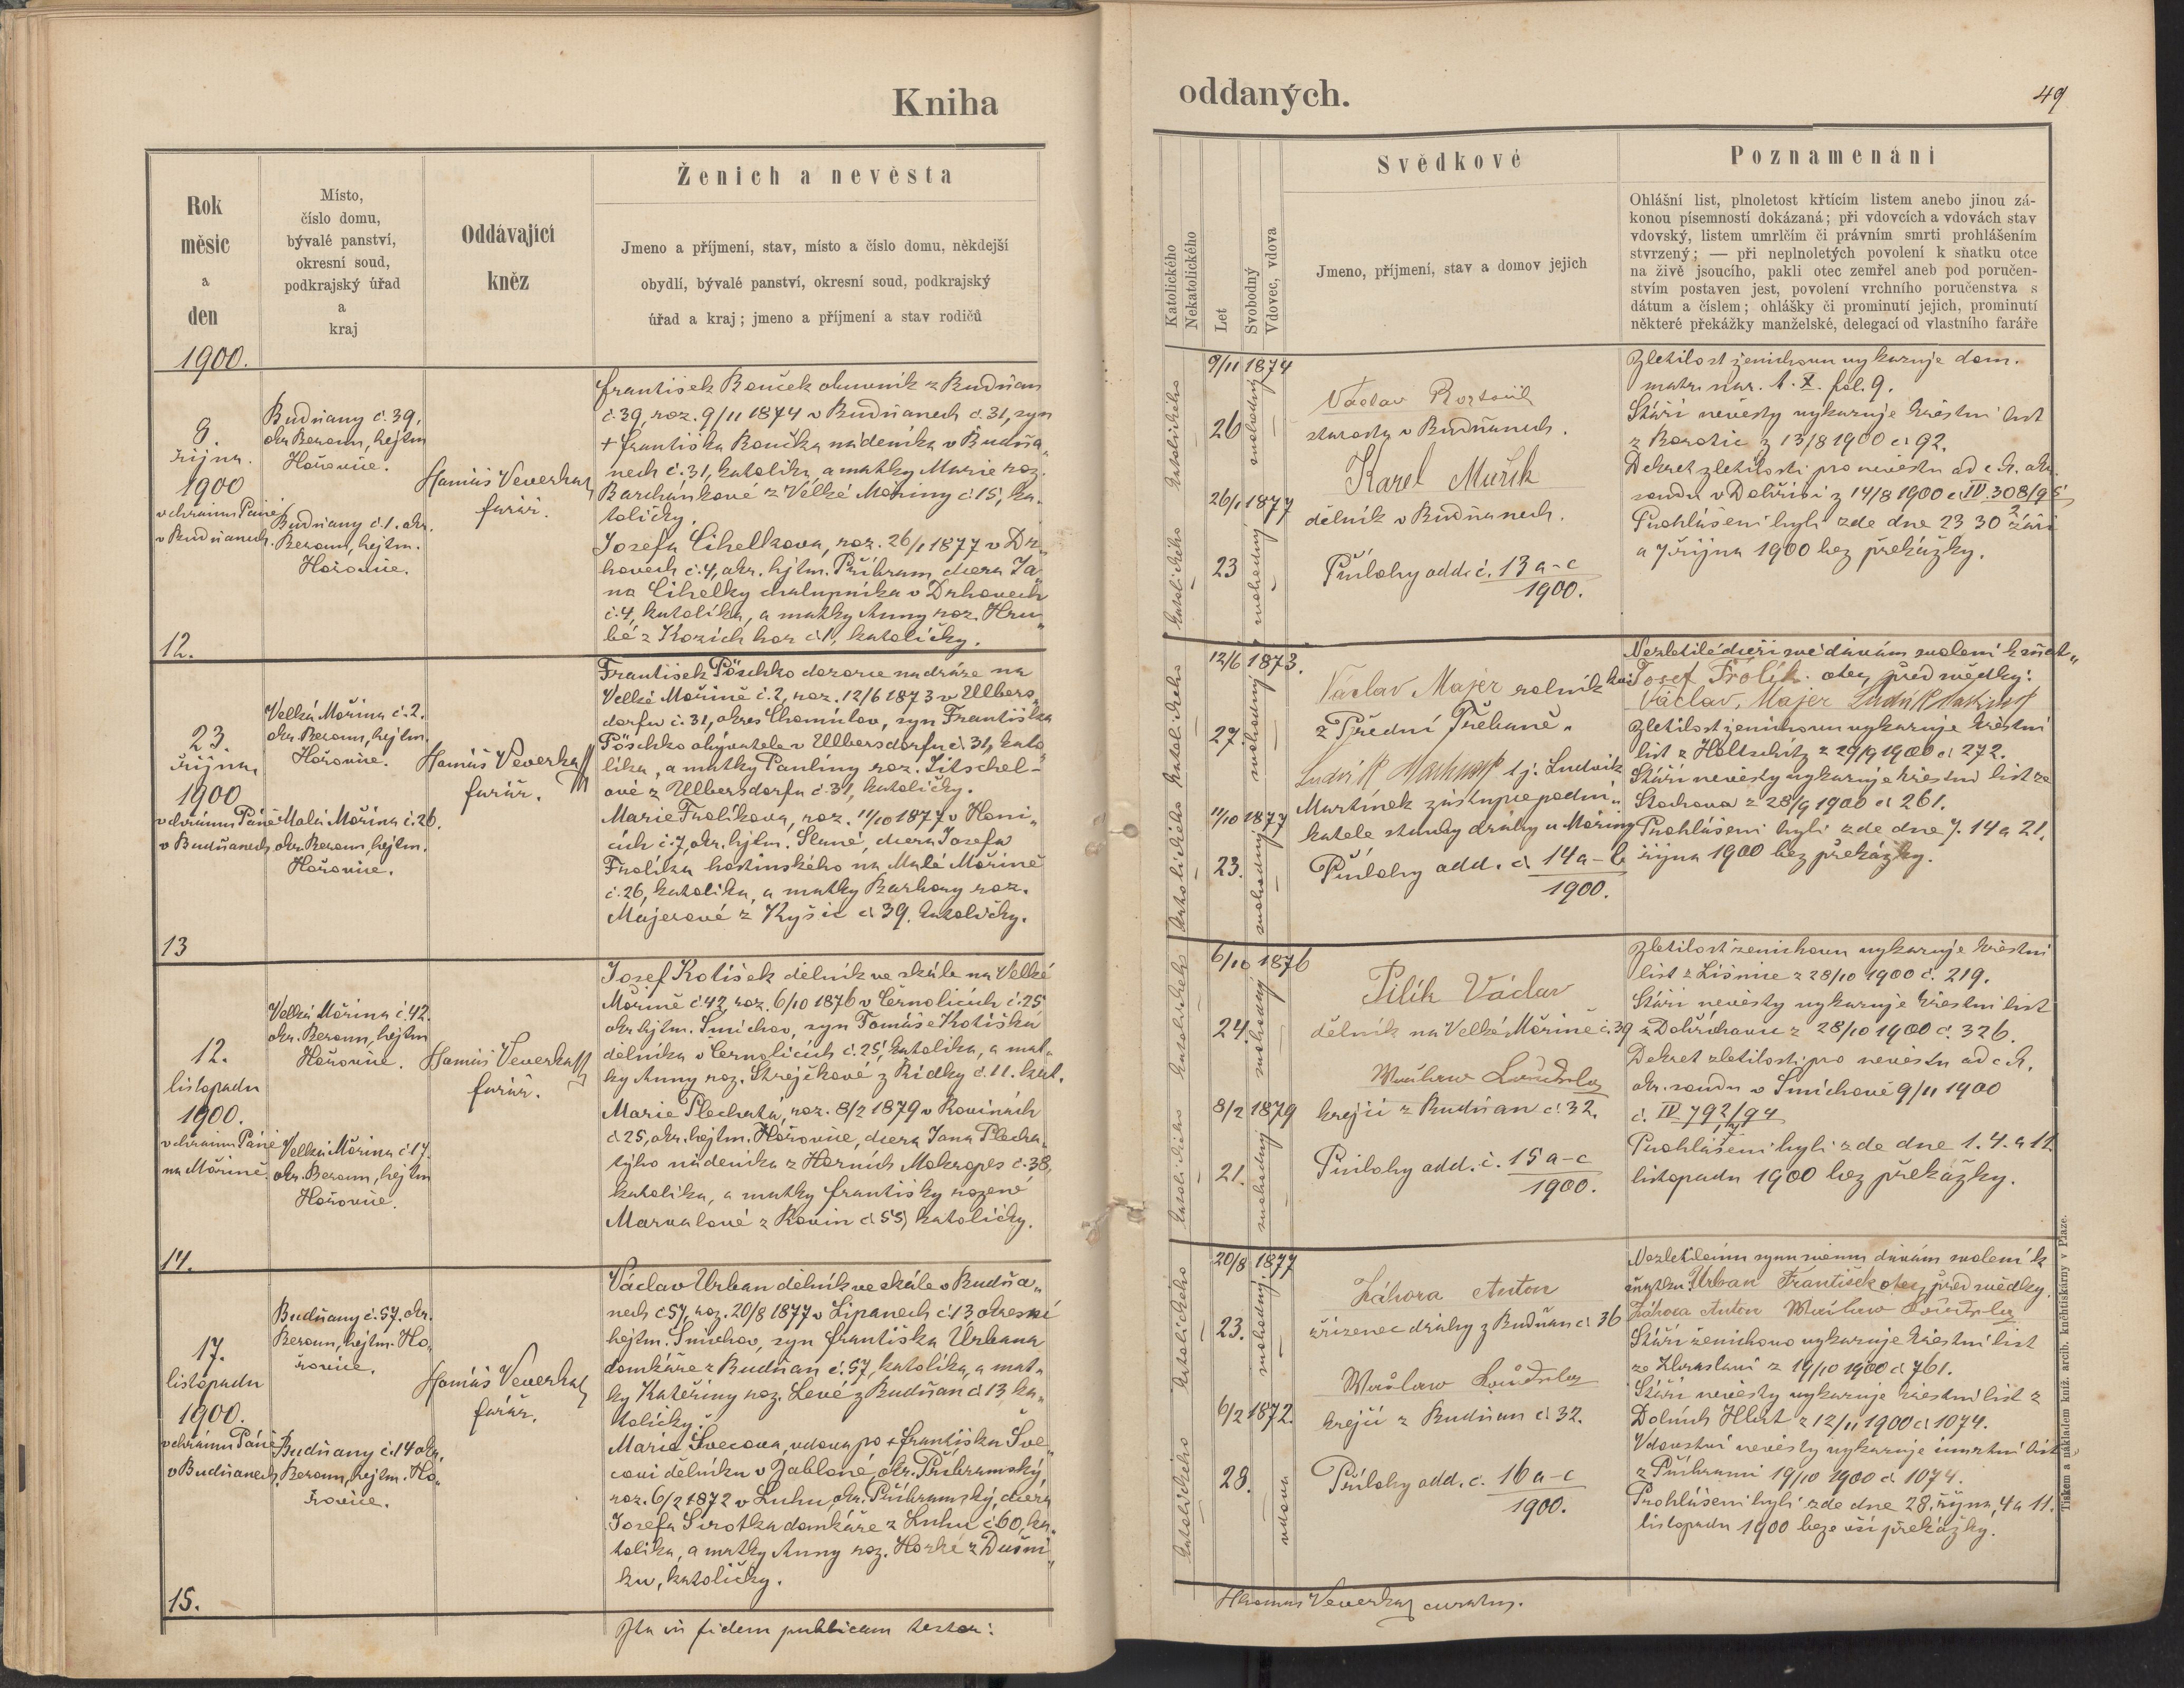 Kniha
oddaných.
49
Rok
měsíc
a
den
Místo,
číslo domu,
bývalé panství,
okresní soud,
podkrajský úřad
a
kraj
Oddávající
kněz
Ženich a nevěsta
Jmeno a příjmení, stav, místo a číslo domu, někdejší
obydlí, bývalé panství, okresní soud, podkrajský
úřad a kraj; jmeno a příjmení a stav rodičů
Katolického
Nekatolického
Let
Svobodný
Vdovec, vdova
Svědkové
Jmeno, příjmení, stav a domov jejich
Poznamenáni
Ohlášní list, plnoletost křtícím listem anebo jinou zá-
konou písemností dokázaná; při vdovcích a vdovách stav
vdovský, listem umrlčím či právním smrti prohlášením
stvrzený; — při neplnoletých povolení k sňatku otce
na živě jsoucího, pakli otec zemřel aneb pod poručen-
stvím postaven jest, povolení vrchního poručenstva s
dátum a číslem; ohlášky či prominutí jejich, prominutí
některé překážky manželské, delegací od vlastního faráře
1900.
října.
1900
v chrámu Páně
v Budňanech.
12.
Budňany č. 39,
okr. Beroun, hejtm
Hořovice.
Budňany č. 1. okr.
Beroun, hejtm.
Hořovice.
Tomáš Veverka
farář.
František Rouček obuvník z Budňan
č. 39, roz. 9/11 1874 v Budňanech č. 31, syn
+ Františka Roučka nádeníka v Budňa„
nech č. 31, katolíka, a matky Marie roz.
Barchánkové z Velké Mořiny č 15, ka„
toličky.
Josefa Cihelkova, roz. 26/1 1877 v Dr„
hovech č. 4, okr. hejtm. Příbram, dcera Ja„
na Cihelky chalupníka v Drhovech
č. 4, katolíka, a matky Anny roz. Hru„
bé z Kozích hor č 1, katoličky.
9/11 1874
26
26/1 1877
23
katolického
katolického
svobodný
svobodný
Václav
starosta v Budňanech.
Karel Mušík
dělník v Budňanech.
Přílohy odd. č. 13 a-c
1900.
Zletilost ženichovu vykazuje dom.
matr. nar. t. X. fol. 9.
Stáří nevěsty vykazuje křestní list
z Borotic z 13/8 1900 č 92.
Dekret zletilosti pro nevěstu od c. k. okr.
soudu v Dobříši z 14/8 1900 č IV. 308/95
Prohlášeni byli zde dne 23 30 září
a 7 října 1900 bez překážky.
23.
října
1900
v chrámu Páně
v Budňanech.
13
Velká Mořina č. 2.
okr. Beroun, hejtm.
Hořovice.
Malá Mořina č. 26.
okr. Beroun, hejtm.
Hořovice.
Tomáš Veverka
farář.
František Pöschko dozorce na dráze na
Velké Mořině č. 2, roz. 12/6 1873 v Ulbers„
dorfu č. 31, okres Chomútov, syn Františka
Pöschko obyvatele v Ulbersdorfu č 31, kato„
líka, a matky Paulíny roz. Sitschel-
ové z Ulbersdorfu č. 31, katoličky.
Marie Frolíkova, roz. 11/10 1877 v Honi„
cích č. 7, okr. hejtm. Slané, dcera Josefa
Frolíka hostinského na Malé Mořině
č. 26, katolíka, a matky Barbory roz.
Majerové z Kyšic č 39. katoličky.
12/6 1873.
27
11/10 1877
23.
katolického
katolického
svobodný
svobodný
Václav Majer rolník
z Přední Třebaně.
tj. Ludvík
Martínek zástupce podni„
katele stavby dráhy u Mořiny
Přílohy odd. č 14 a-b
1900.
Nezletilé dceři své dávám svolení k sňat„
ku: Josef Frólík. otec, před svědky:
Václav, Majer
Zletilost ženichovu vykazuje křestní
list z Holtschitz z 29/9 1900 č 272.
Stáří nevěsty vykazuje křestní list ze
Stochova z 28/9 1900 č 261.
Prohlášeni byli zde dne 7. 14 a 21.
října 1900 bez překážky.
12.
listopadu
1900.
v chrámu Páně
na Mořině.
14.
Velká Mořina č. 42.
okr. Beroun, hejtm
Hořovice.
Velká Mořina č. 17.
okr. Beroun, hejtm
Hořovice.
Tomáš Veverka
farář.
Josef Kotíšek dělník ve skále na Velké
Mořině č 42, roz. 6/10 1876 v Černolicích č. 25
okr. hejtm. Smíchov, syn Tomáše Kotíška
dělníka v Černolicích č. 25, katolíka, a mat„
ky Anny roz. Strejčkové z Řídky č. 11. kat.
Marie Plechatá, roz. 8/2 1879 v Rovinách
č 25, okr. hejtm. Hořovice, dcera Jana Plecha„
týho nádeníka z Horních Mokropes č. 38,
katolíka, a matky Františky rozené
Marvalové z Rovin č 55, katoličky.
6/10 1876
24.
8/2 1879
21.
katolického
katolického
svobodný
svobodný
Pilík Václav
dělník na Velké Mořině č. 39
Waclaw Loudilus
krejčí z Budňan č. 32.
Přílohy odd. č. 15 a-c
1900.
Zletilost ženichovu vykazuje křestní
list z Líšnice z 28/10 1900 č. 219.
Stáří nevěsty vykazuje křestní list
z Dobřichovic z 28/10 1900 č. 326.
Dekret zletilosti pro nevěstu od c. k.
okr. soudu v Smíchově 9/11 1900
č. IV 792/94
Prohlášeni byli zde dne 1. 4. a 11
listopadu 1900 bez překážky.
17.
listopadu
1900.
v chrámu Páně
v Budňanech.
15.
Budňany č. 57. okr.
Beroun, hejtm. Ho„
řovice.
Budňany č. 14 okr.
Beroun, hejtm. Ho„
řovice.
Tomáš Veverka
farář.
Václav Urban dělník ve skále v Budňa„
nech č 57, roz. 20/8 1877 v Lipanech č 13 okresní
hejtm. Smíchov, syn Františka Urbana
domkáře z Budňan č. 57, katolíka, a mat„
ky Kateřiny roz. Levé z Budňan č 13 ka„
toličky.
Marie Švecova, vdova po + Františku Šve„
covi dělníku v Jabloné, okr. Příbramský,
roz. 6/2 1872 v Luhu, okr. Příbramský, dcera
Josefa Sirotka domkáře z Luhu č 60, ka„
tolíka, a matky Anny roz. Horké z Dušní„
ku, katoličky.
20/8 1877
23.
6/2 1872.
28.
katolického
katolického
svobodný.
vdova
Záhora Anton
zřízenec dráhy z Budňan č 36
Waclaw Loudilus
krejčí z Budňan č 32.
Přílohy odd. č. 16 a-c
1900.
Nezletilému synu svému dávám svolení k
sňatku. Urban František otec, před svědky.
Záhora Anton Waclaw Loudilus
Stáří ženichovo vykazuje křestní list
ze Zbraslavi z 19/10 1900 č 761.
Stáří nevěsty vykazuje křestní list z
Dolních Hbit z 12/11 1900 č 1074.
Vdovství nevěsty vykazuje úmrtní list
z Příbrami 19/10 1900 č. 1074.
Prohlášeni byli zde dne 28. října, 4 a 11.
listopadu 1900 beze vší překážky.
Ita in fidem publicam testor:
Thomas Veverka curatus.
Tiskem a nákladem kniž. arcib. knihtiskárny v Praze.